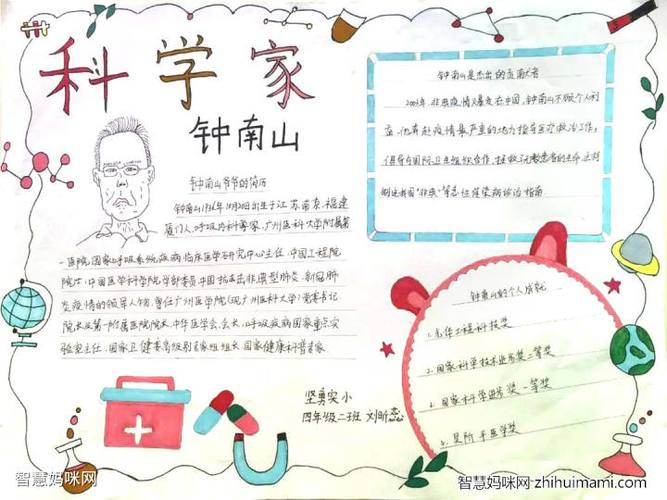 科学家
钟南山
钟南山爷爷的简历
钟南山1936年10月20日出生于江苏南京,福建
厦门人,呼吸内科学家,广州医科大学附属第
一医院国家呼吸系统疾病临床医学研究中心主任,中国工程院
院士,中国医学科学院学部委员,中国抗击非典型肺炎、新冠肺
炎疫情的领军人物,曾任广州医学院(现广州医科大学)党委书记
院长及第一附属医院院长,中华医学会会长,呼吸疾病国家重点实
验室主任,国家卫健委高级别专家组组长,国家健康科普专家.
坚勇实小
四年级二班 刘昕蕊
钟南山是杰出的贡献者
2003年,非典疫情大爆发在中国,钟南山不顾个人利
益,他奔赴疫情最严重的地方指导医疗救治工作,
倡导与国际卫生组织合作,拯救
制定我国"非典"等急性传染病诊治指南
钟南山的个人成就
1.光华工程科技奖
2.国家科学技术进步奖二等奖
3.国家科学进步奖一等奖
4.吴阶平医学奖
智慧妈咪网
智慧妈咪网 zhihuimami.com